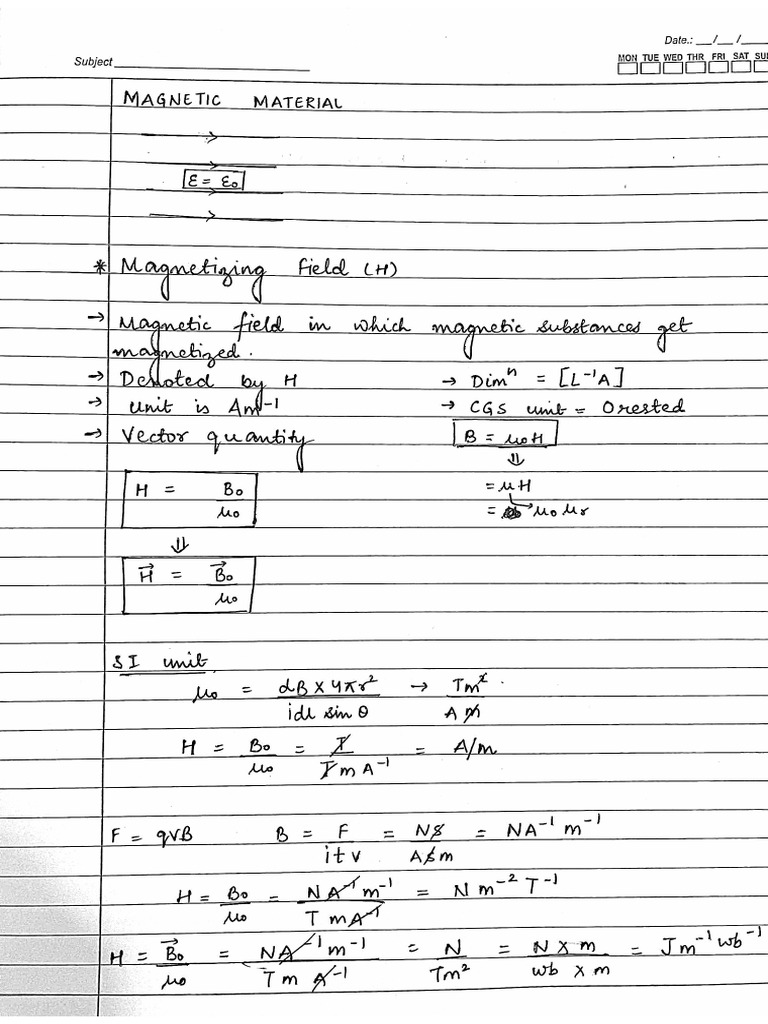 Date.: __/__/____
Subject
MON TUE WED THR FRI SAT SU
MAGNETIC MATERIAL
ε = ε₀
* Magnetizing field (H)
→ Magnetic field in which magnetic substances get
magnetized.
→ Denoted by H → Dimⁿ = [L⁻¹A]
→ unit is Am⁻¹ → CGS unit = Orested
→ Vector quantity B = μ₀H
⇓
H = B₀/μ₀ = μH
= → μ₀μr
⇓
H⃗ = B⃗₀/μ₀
SI unit
μ₀ = dB × 4πr²/idl sin θ → Tm²/Am
H = B₀/μ₀ = T/TmA⁻¹ = A/m
F = qvB B = F/itv = Ns/Asm = NA⁻¹m⁻¹
H = B₀/μ₀ = NA⁻¹m⁻¹/TmA⁻¹ = Nm⁻²T⁻¹
H = B⃗₀/μ₀ = NA⁻¹m⁻¹/TmA⁻¹ = N/Tm² = N×m/wb×m = Jm⁻¹wb⁻¹